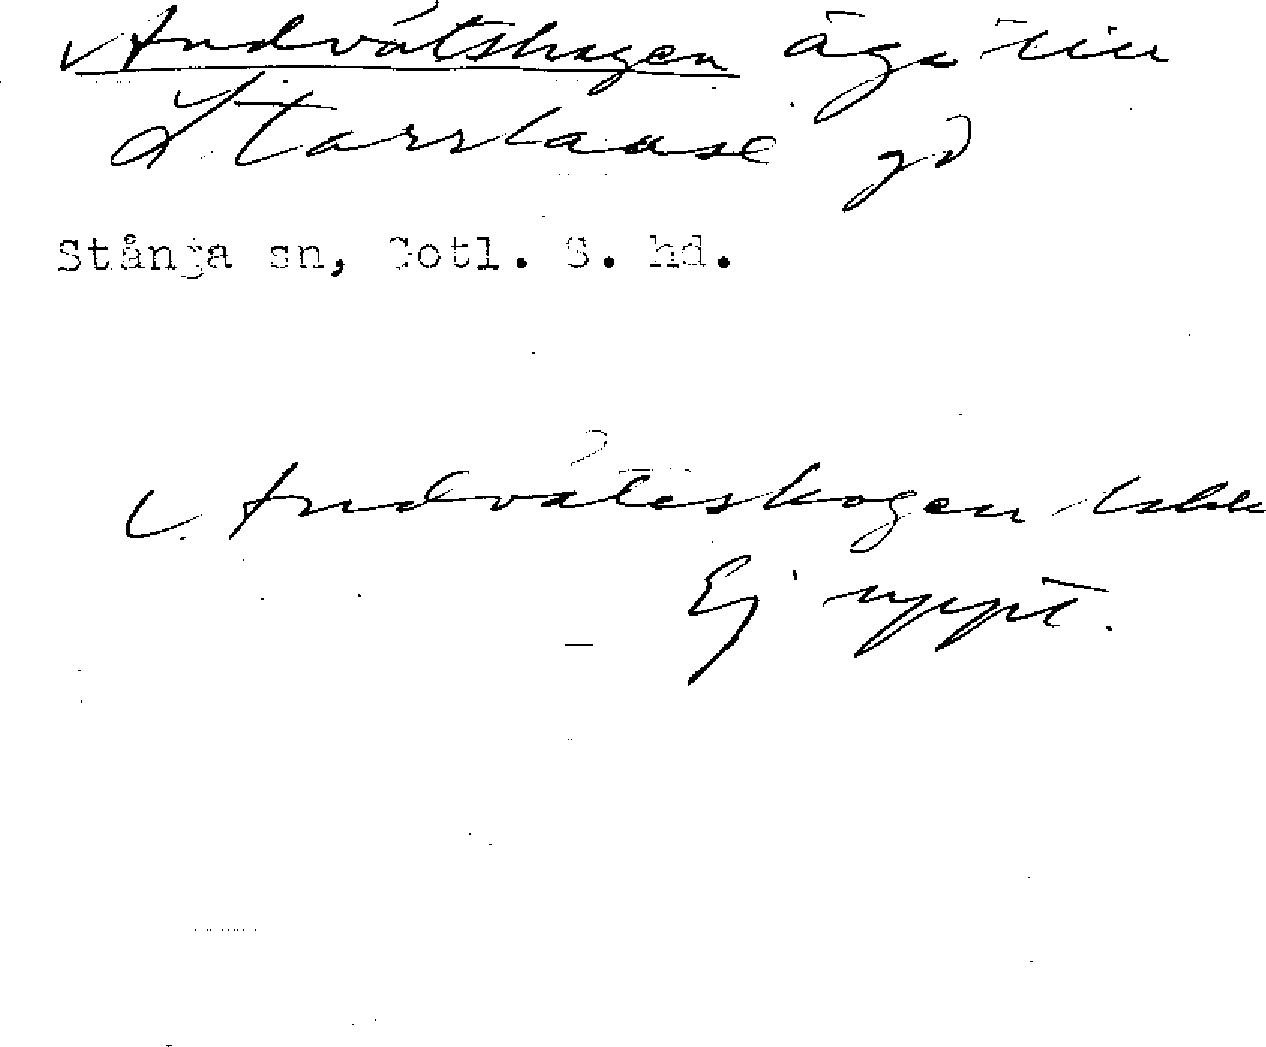 Andvátshagen äga till
Starrlaase gd
Stånga sn, Gotl. S. hd.
Andváteskogen
Ej uppt.